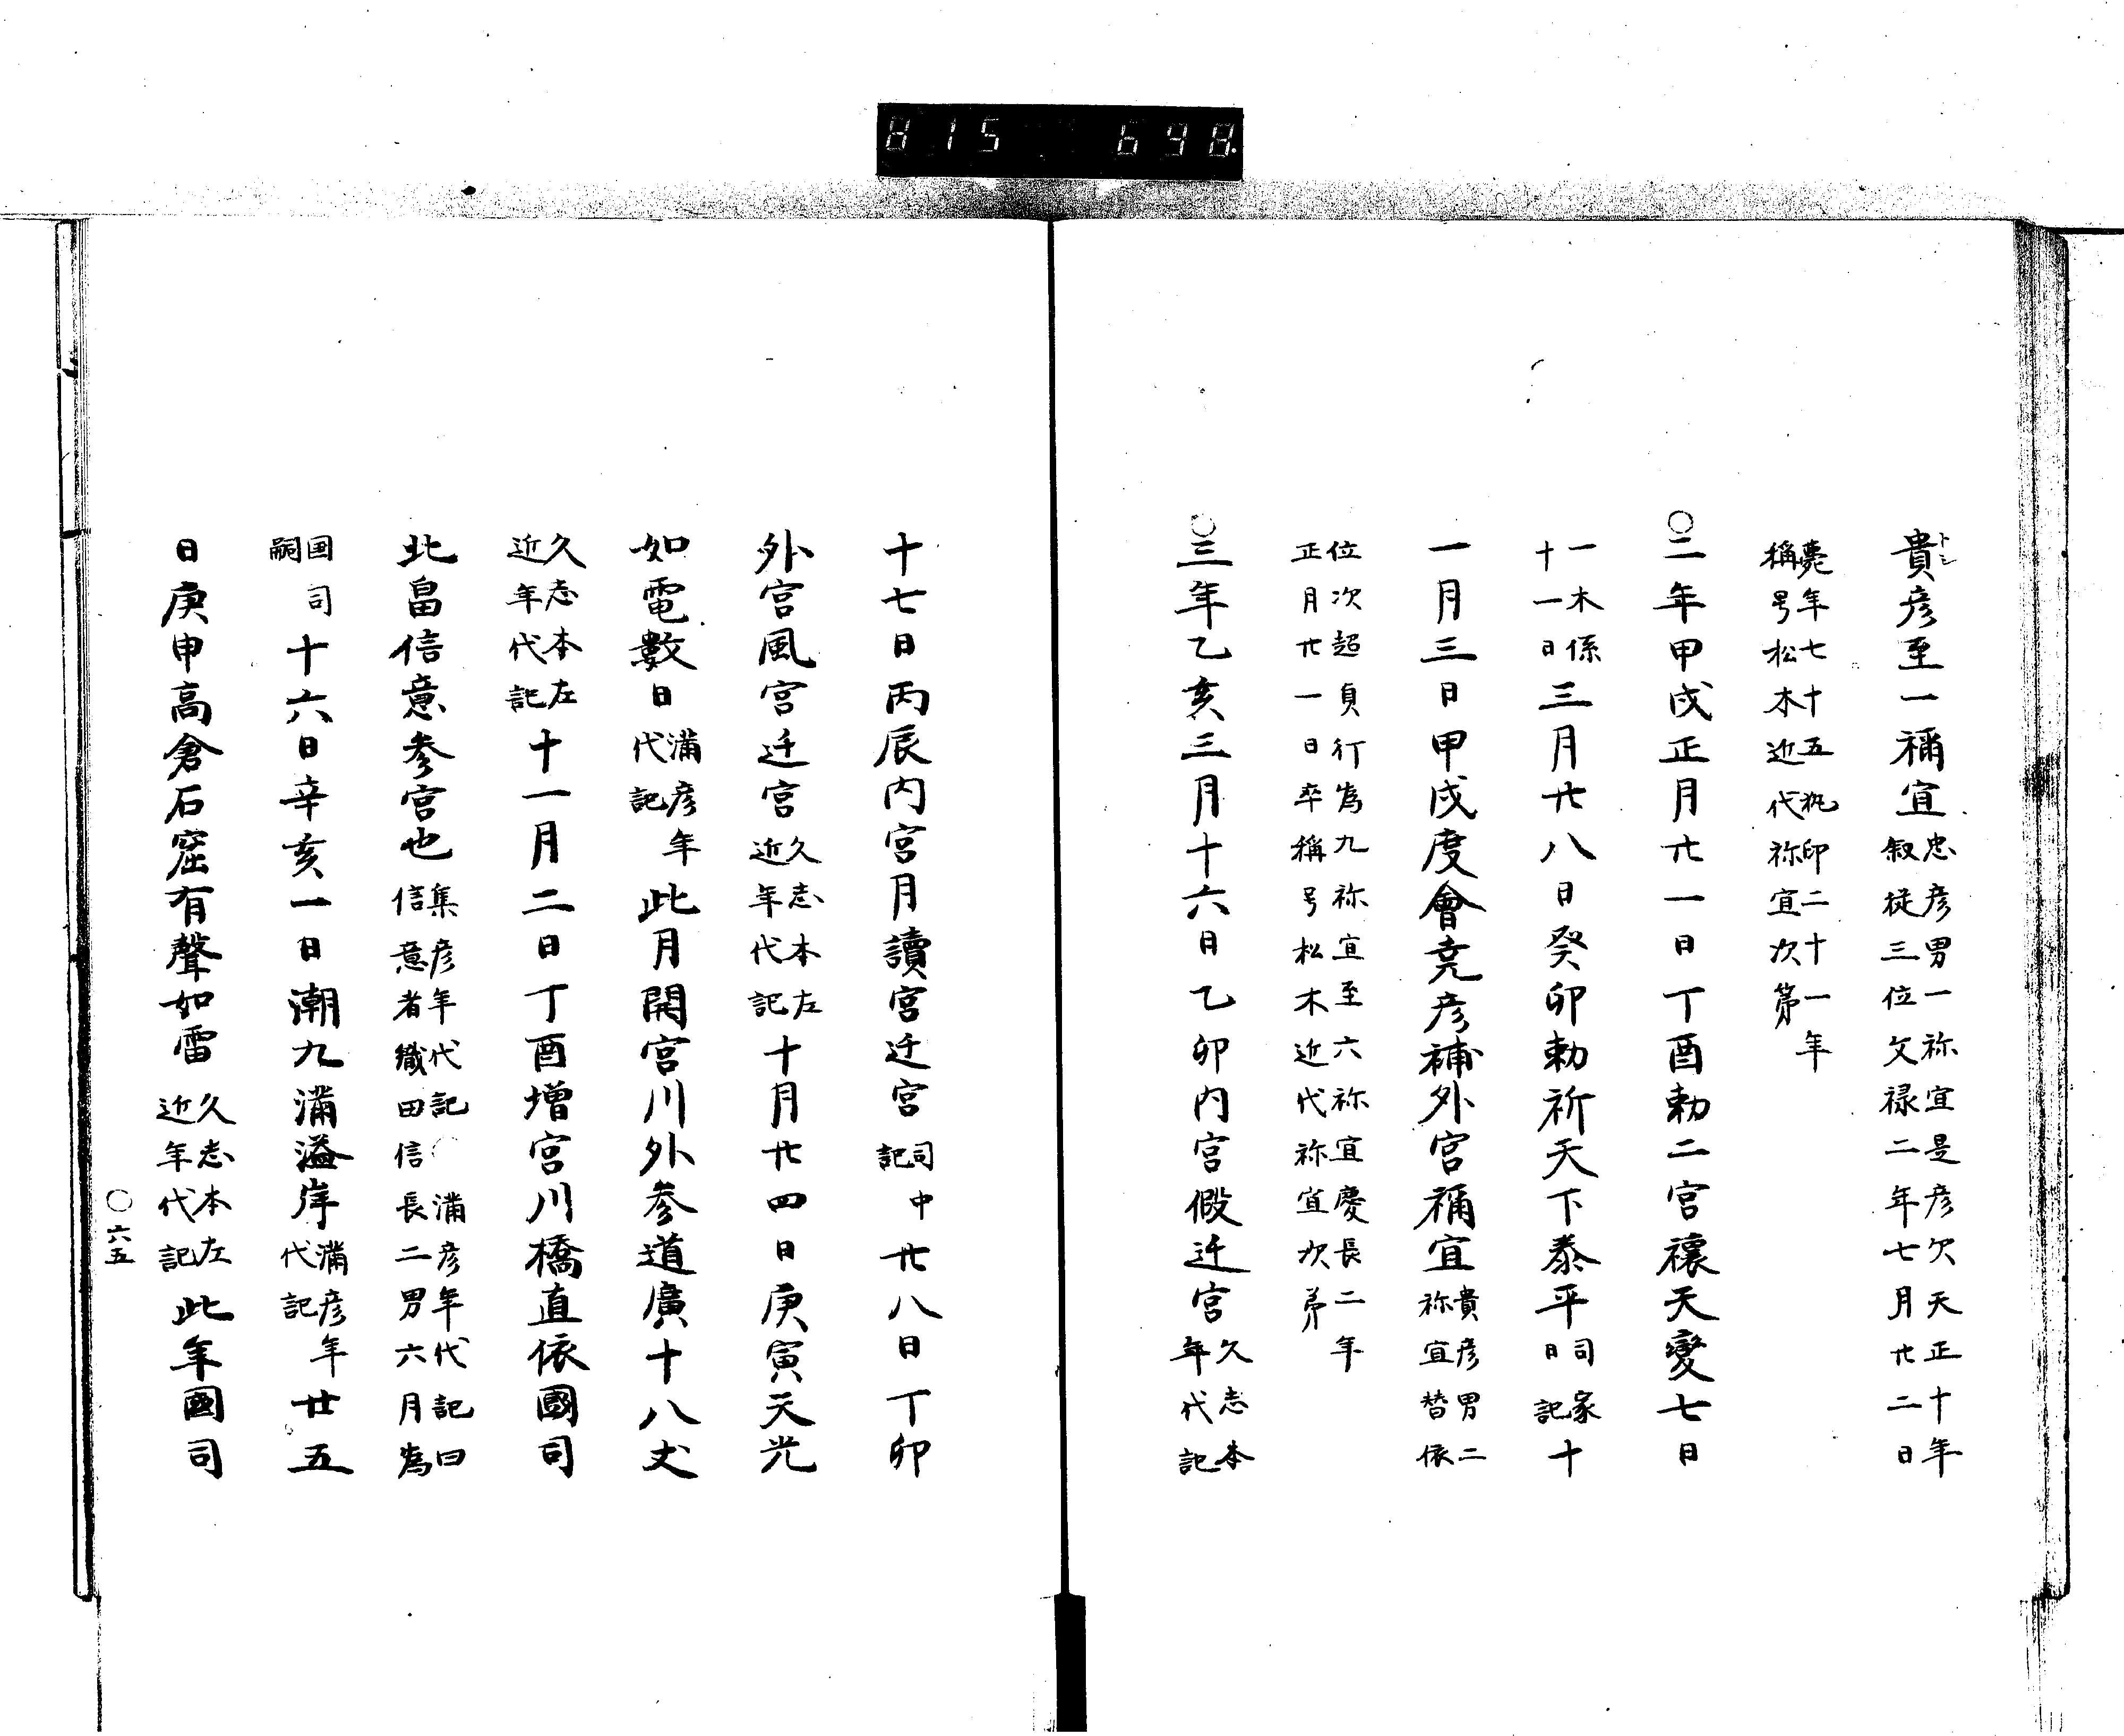 815 698
貴彦至一禰宜忠彦男一祢宜是彦欠天正十年叙従三位文禄二年七月廿二日
薨年七十五執印二十一年稱号松木近代祢宜次第
○二年甲戌正月廿一日丁酉勅二宮禳天變七日
一木係十一日三月廿八日癸卯勅祈天下泰平司家日記十
一月三日甲戌度會尭彦補外宮禰宜貴彦男二祢宜替依
位次超貞行為九祢宜至六祢宜慶長二年正月廿一日卒稱号松木近代祢宜次第
○三年乙亥三月十六日乙卯内宮假迁宮久志本年代記
十七日丙辰内宮月讀宮迁宮司中記廿八日丁卯
外宮風宮迁宮久志本左近年代記十月廿四日庚寅天光
如電數日満彦年代記此月開宮川外参道廣十八丈
久志本左近年代記十一月二日丁酉増宮川橋直依國司
北畠信意参宮也集彦年代記○満彦年代記曰信意者織田信長二男六月為
国司嗣十六日辛亥一日潮九満溢岸満彦年代記廿五
日庚申高倉石窟有聲如雷久志本左近年代記此年國司
○六五